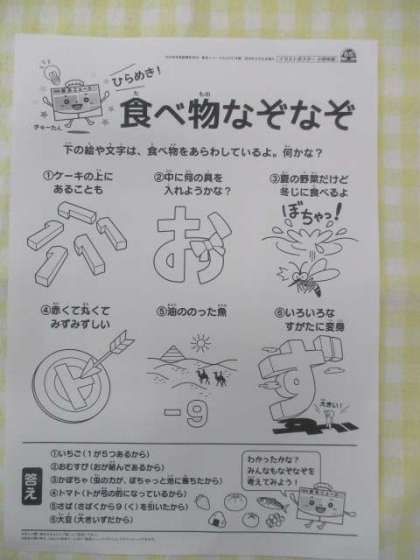 ひらめき!
食べ物なぞなぞ
下の絵や文字は、食べ物をあらわしているよ。何かな?
①ケーキの上に
あることも
②中に何の具を
入れようかな?
③夏の野菜だけど
冬じに食べるよ
ぼちゃっ!
お
④赤くて丸くて
みずみずしい
⑤油ののった魚
⑥いろいろな
すがたに変身
ト
-9
ず
大きい!
答え
①いちご(1が5つあるから)
②おむすび(おが結んであるから)
③かぼちゃ(虫のカが、ぼちゃっと池に落ちたから)
④トマト(トが弓の的になっているから)
⑤さば(さばくから9(く)を引いたから)
⑥大豆(大きいずだから)
わかったかな?
みんなもなぞなぞを
考えてみよう!